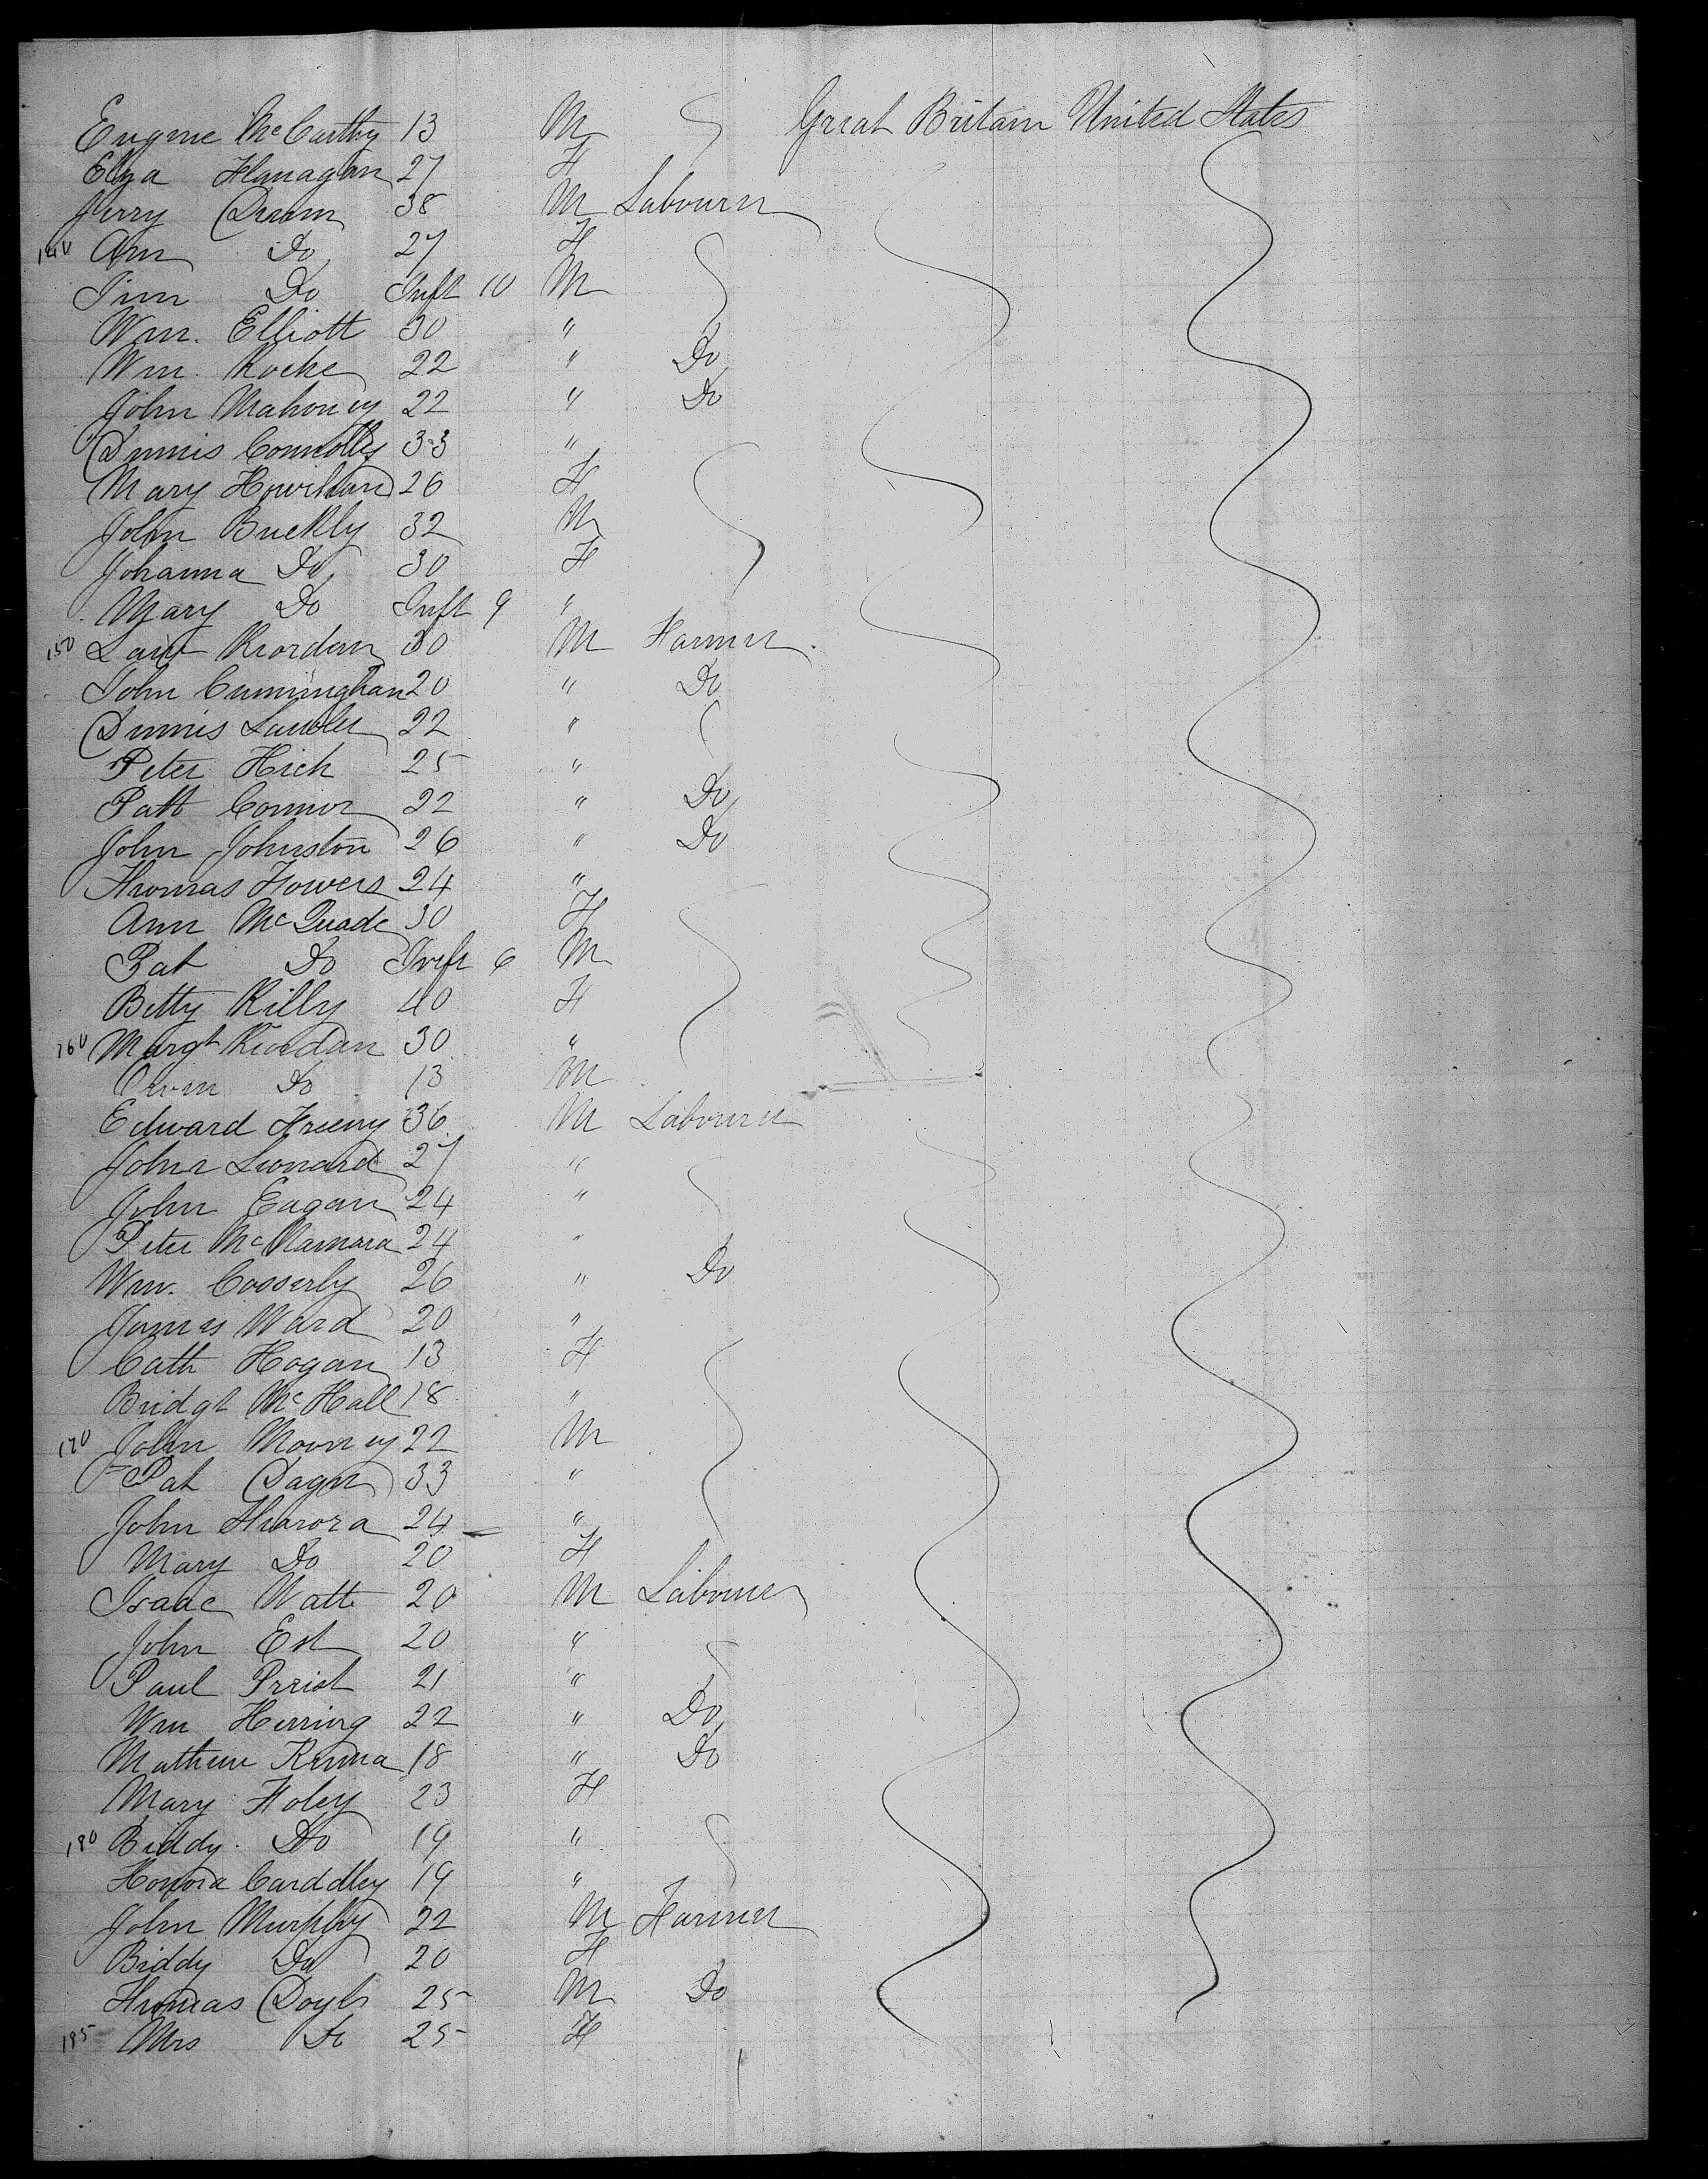 Eugene McCarthy 13 M Great Britain United States
Eliza Flanagan 27 F
Jerry 38 M Labourer
140 Ann Do 27 F
Do Inft 10 M
Wm. Elliott 30 "
Wm. Roche 22 " Do
John Mahoney 22 " Do
Dennis Connolly 33 "
Mary 26 F
John Buckly 32 M
Johanna Do 30 F
Mary Do Inft 9 "
150 Riordan 30 M Farmer
John Cunningham 20 " Do
Dennis Lawler 22 "
Peter 25 "
Patt Connor 22 " Do
John Johnston 26 " Do
Thomas Flowers 24 "
Ann McQuade 30 F
Pat Do Inft 6 M
Betty Killy 40 F
160 Margt Riordan 30 "
Owen Do 13 M
Edward Freeny 36 M Labourer
John Leonard 27 "
John Eagan 24 "
Peter McNamara 24 "
Wm. Cosserly 26 " Do
James Ward 20 "
Cath Hogan 13 F
Bridgt McHall 18 "
170 John Mooney 22 M
Pat 33 "
John 24 "
Mary Do 20 F
Isaac Watt 20 M Labourer
John Est 20 "
Paul Priest 21 "
Wm Herring 22 " Do
Mathew 18 " Do
Mary Foley 23 F
180 Biddy Do 19 "
Honora 19 "
John Murphy 22 M Farmer
Biddy Do 20 F
Thomas Doyle 25 M Do
185 Mrs Do 25 F